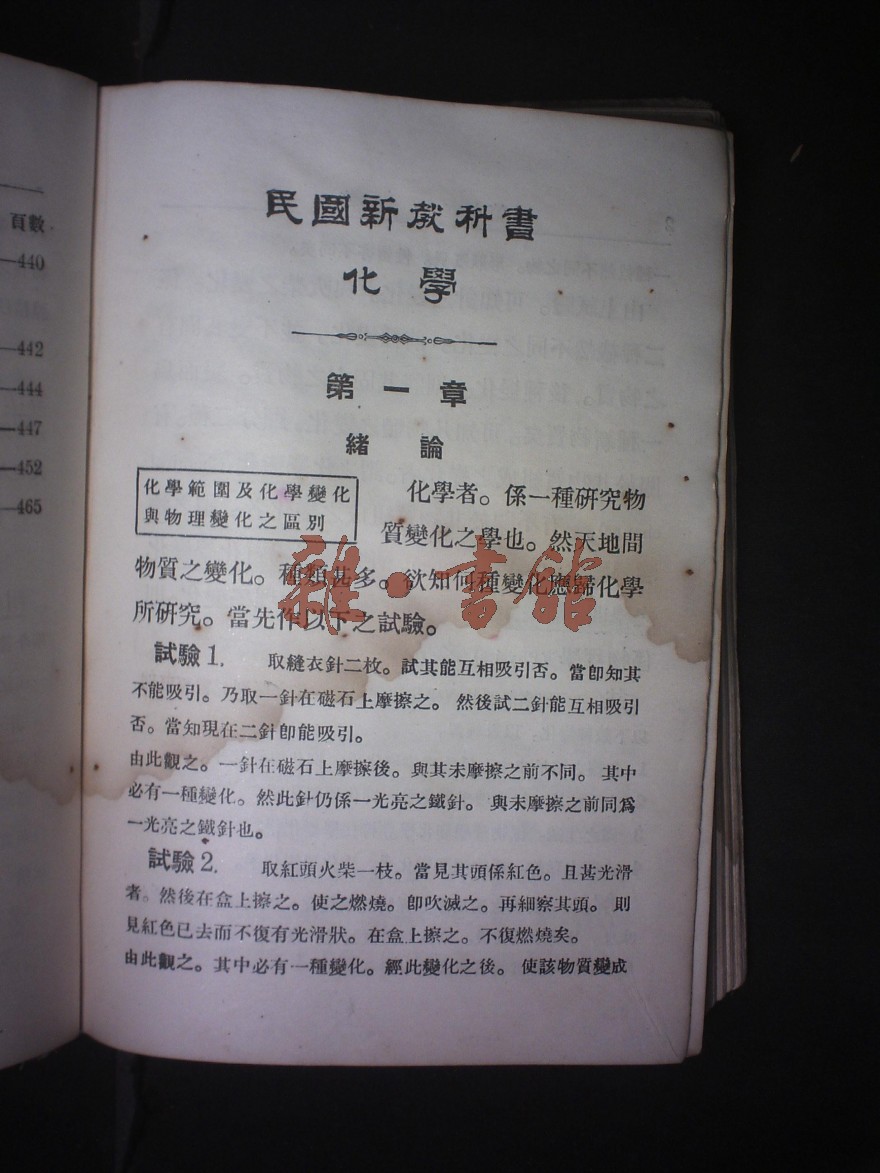 頁數
—440
—442
—444
—447
—452
—465
民國新教科書
化學
第一章
緒論
化學範圍及化學變化
與物理變化之區別
化學者。係一種研究物
質變化之學也。然天地間
物質之變化。種類甚多。欲知何種變化應歸化學
所研究。當先作以下之試驗。
試驗1. 取縫衣針二枚。試其能互相吸引否。當卽知其
不能吸引。乃取一針在磁石上摩擦之。然後試二針能互相吸引
否。當知現在二針卽能吸引。
由此觀之。一針在磁石上摩擦後。與其未摩擦之前不同。其中
必有一種變化。然此針仍係一光亮之鐵針。與未摩擦之前同爲
一光亮之鐵針也。
試驗2. 取紅頭火柴一枝。當見其頭係紅色。且甚光滑
者。然後在盒上擦之。使之燃燒。卽吹滅之。再細察其頭。則
見紅色已去而不復有光滑狀。在盒上擦之。不復燃燒矣。
由此觀之。其中必有一種變化。經此變化之後。使該物質變成
雜·書館